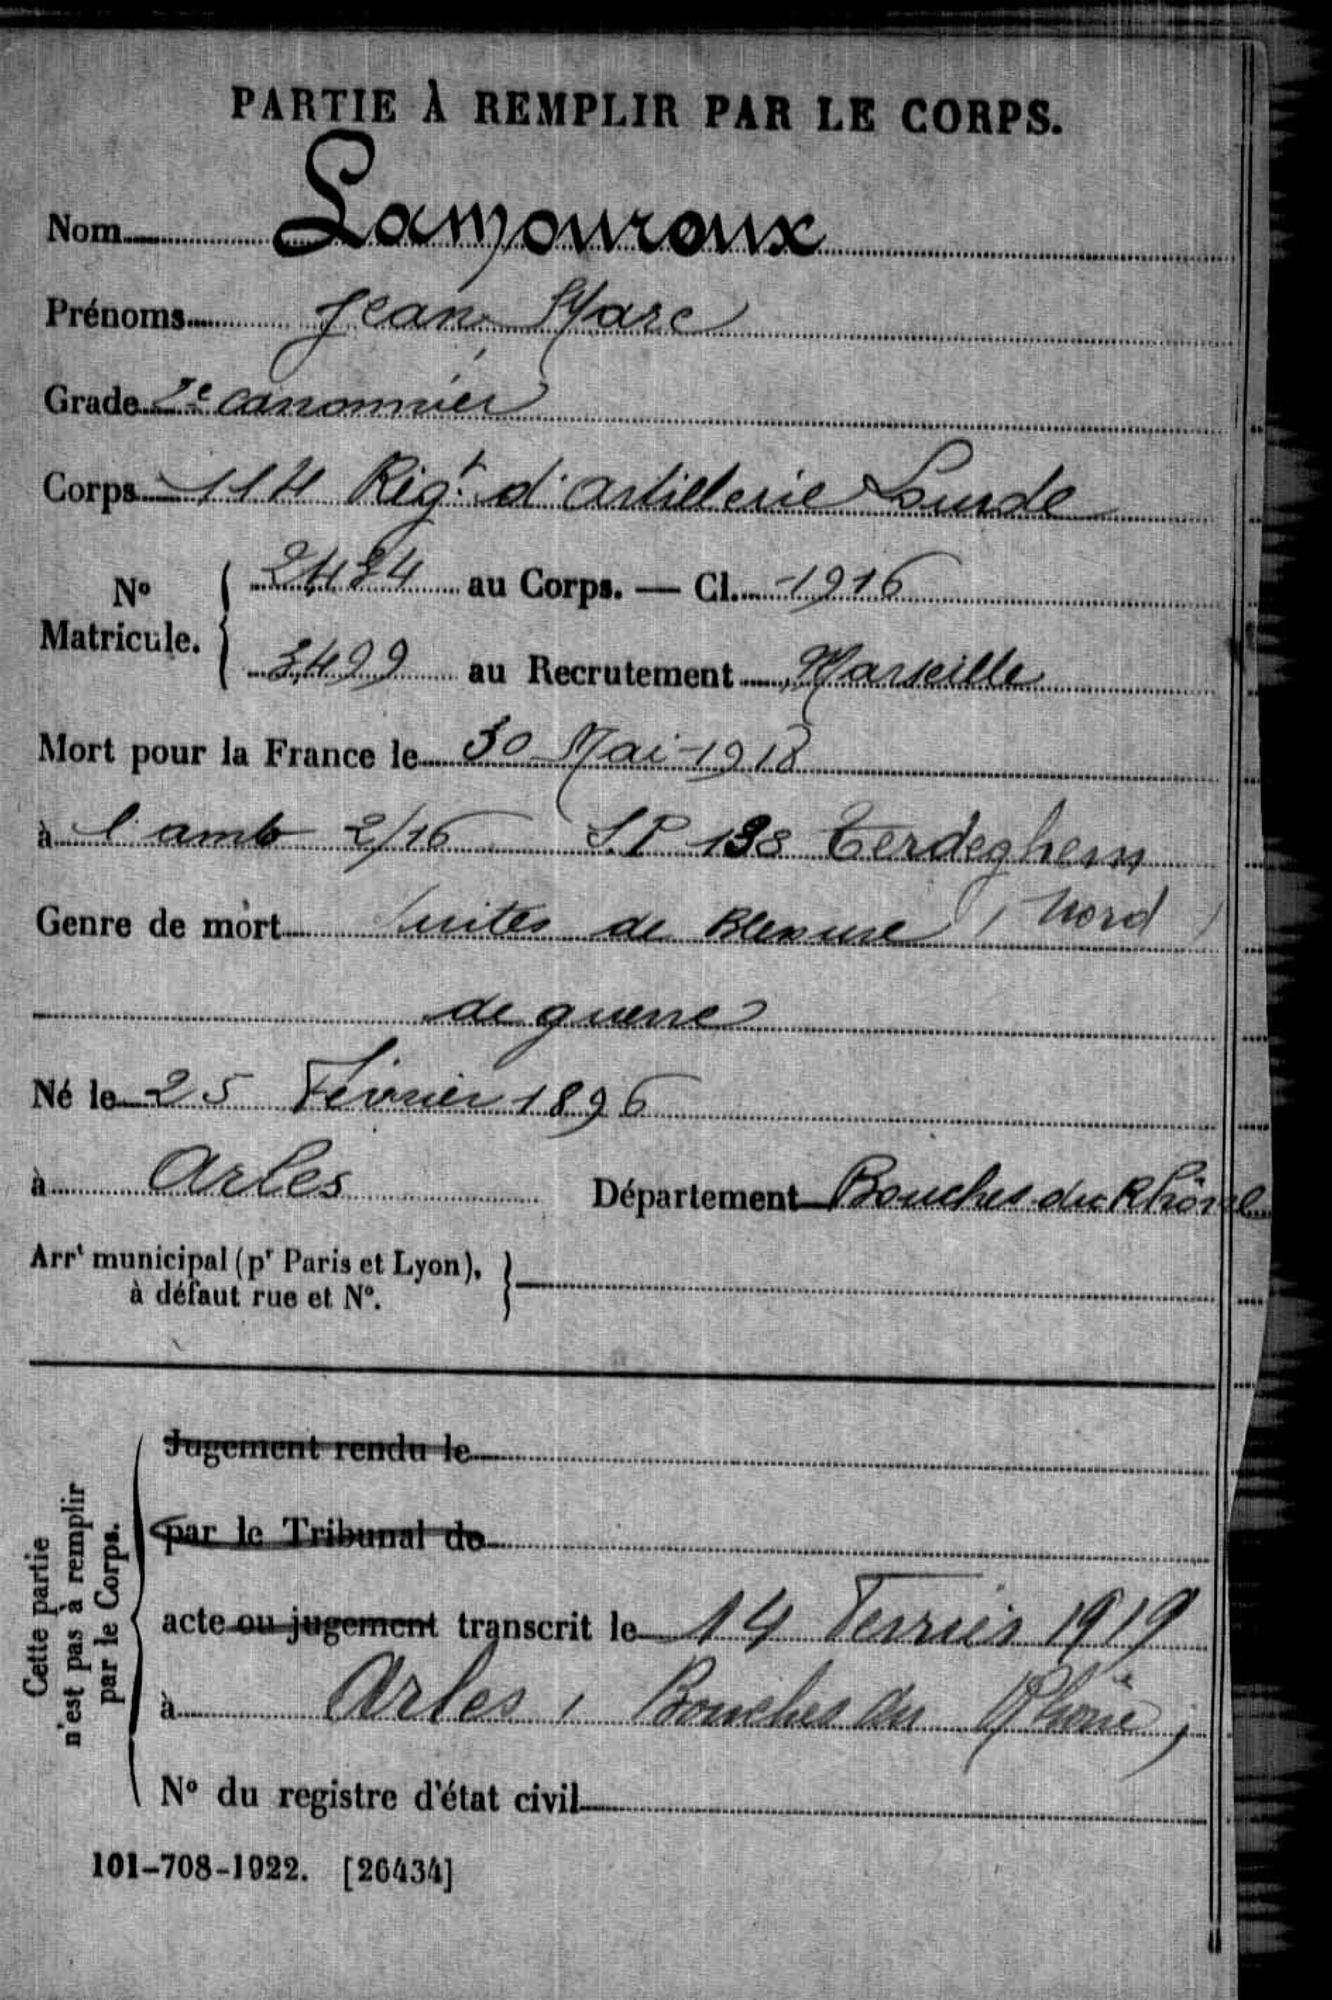 PARTIE À REMPLIR PAR LE CORPS.
Nom Lamouroux
Prénoms Jean Marc
Grade 2e canonnier
Corps 114 Régt d'artillerie Lourde
No Matricule. { 2484 au Corps. — Cl. 1916
3499 au Recrutement Marseille
Mort pour la France le 30 Mai 1918
à l'amb 2/16 S.P 138 Terdeghem
Genre de mort Suites de Blessure ( Nord )
de guerre
Né le 25 Février 1896
à Arles Département Bouches du Rhône
Arrt municipal (pr Paris et Lyon),
à défaut rue et No. }
Cette partie
n'est pas à remplir
par le Corps.
Jugement rendu le
par le Tribunal de
acte ou jugement transcrit le 14 Fevrier 1919
à Arles, Bouches du Rhône,
No du registre d'état civil
101-708-1922. [26434]